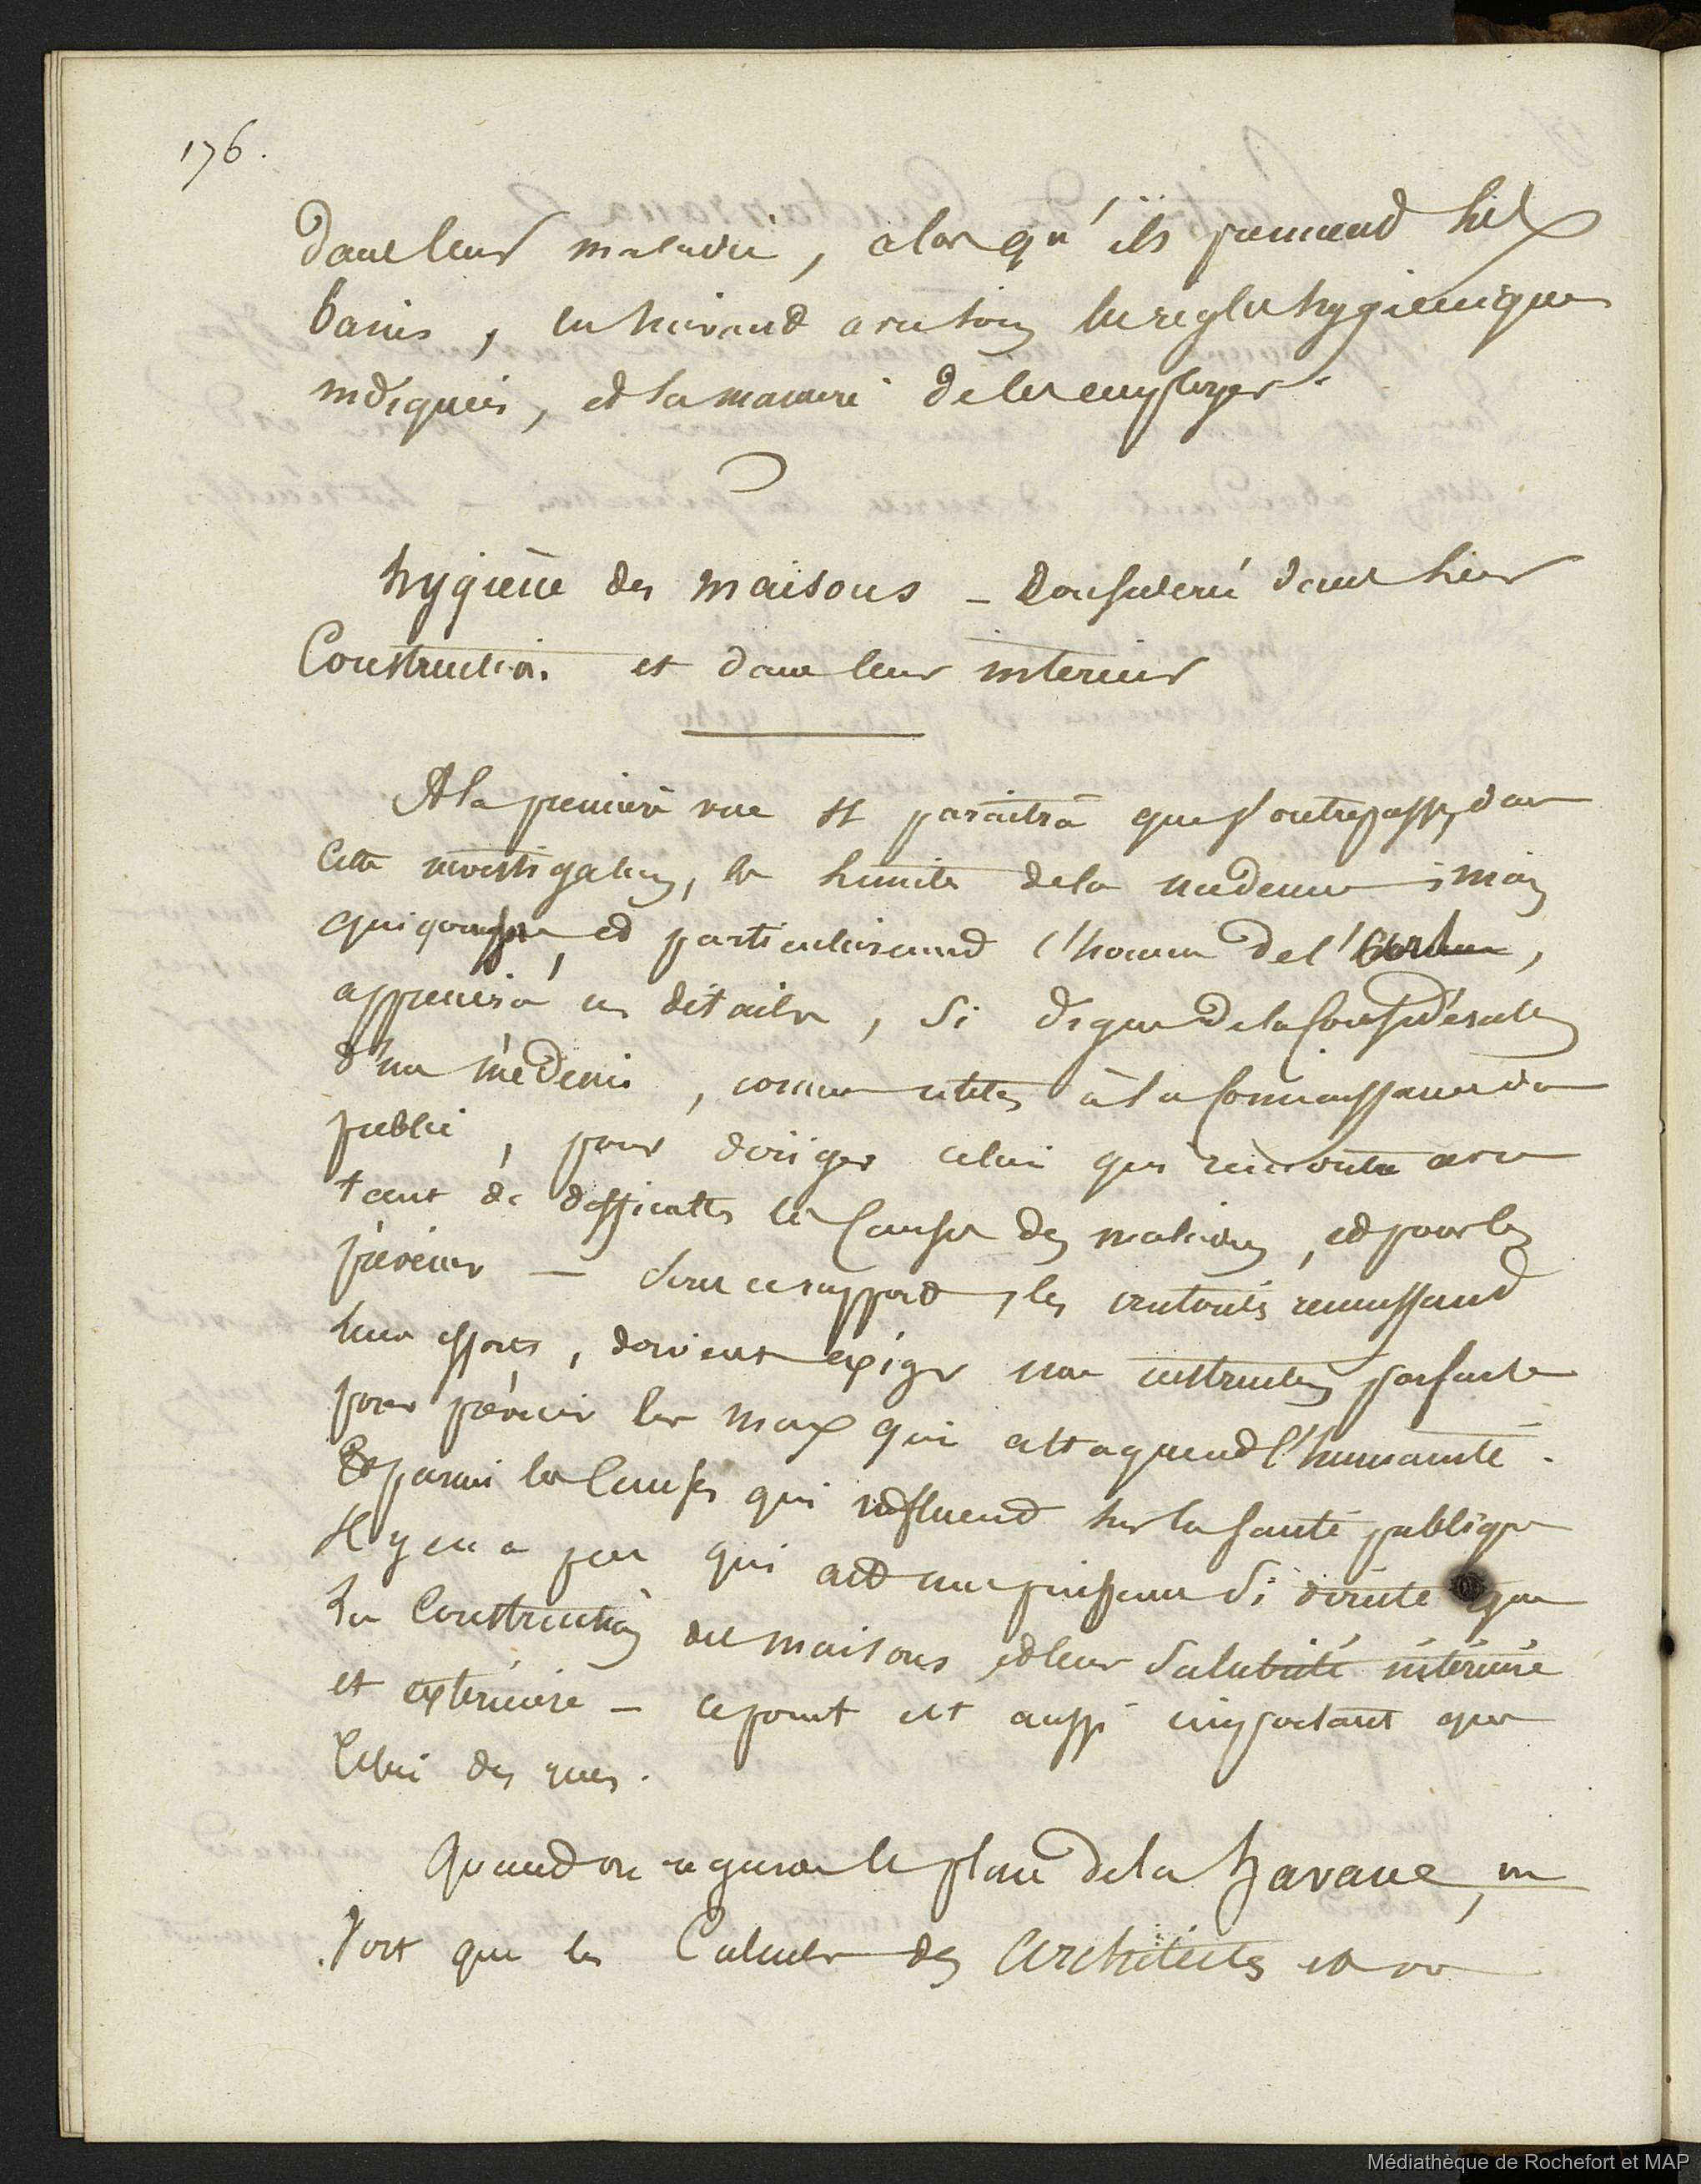 176.
dans leurs maladie, alors qu'ils prennend les
bains, en suivand avec soin les regles hygieniques
indiquées, et la maniere de les employer.
hygiène des maisons - Considerée dans leur
Construction et dans leur interieur
A la premiere vue il paraitra que j'outrepasse, dans
cette investigation, les limites de la medecine ; mais
quiconque, et particulierement l'homme de l'
appreciera ces détails, si digne de la Considération
d'un médecin, comme utiles à la Connaissance du
public, pour diriger celui qui rencontre avec
tant de difficultés les Causes des maladies, et pour les
prévenir — sous ce rapport, les autorités reunissand
leurs efforts, doivent exiger une instruction parfaite
pour prévenir les maux qui attaquend l'humanité.
Et parmi les Causes qui influend sur la santé publique
Il y en a peu qui aid une puissance si directe que
la Construction des maisons et leur salubrité intérieure
et extérieure — ce point est aussi important que
Celui des rues.
Quand on a le plan de la havane, on
voit que les Calculs des Architectes
Médiathèque de Rochefort et MAP